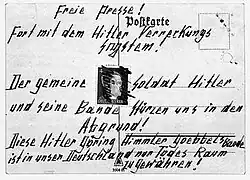 Freie Presse!
Postkarte
Fort mit dem Hitler Verreckungs
System!
Der gemeine Soldat Hitler
und seine Bande stürzen uns in den
Abgrund!
Diese Hitler Göring Himmler Goebbels Bande
ist in unser Deutschland nur Todes Raum
zu gewähren!